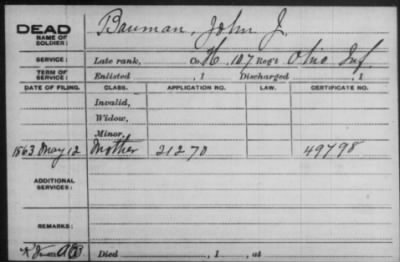 DEAD Bauman, John J.
NAME OF SOLDIER:
SERVICE: Late rank, Co. H, 107 Reg't Ohio Inf.
TERM OF SERVICE: Enlisted , 1 Discharged , 1
DATE OF FILING. CLASS. APPLICATION NO. LAW. CERTIFICATE NO.
Invalid,
Widow,
Minor,
1863 May 12 Mother 21270 49798
ADDITIONAL SERVICES:
REMARKS:
Died , 1 , at